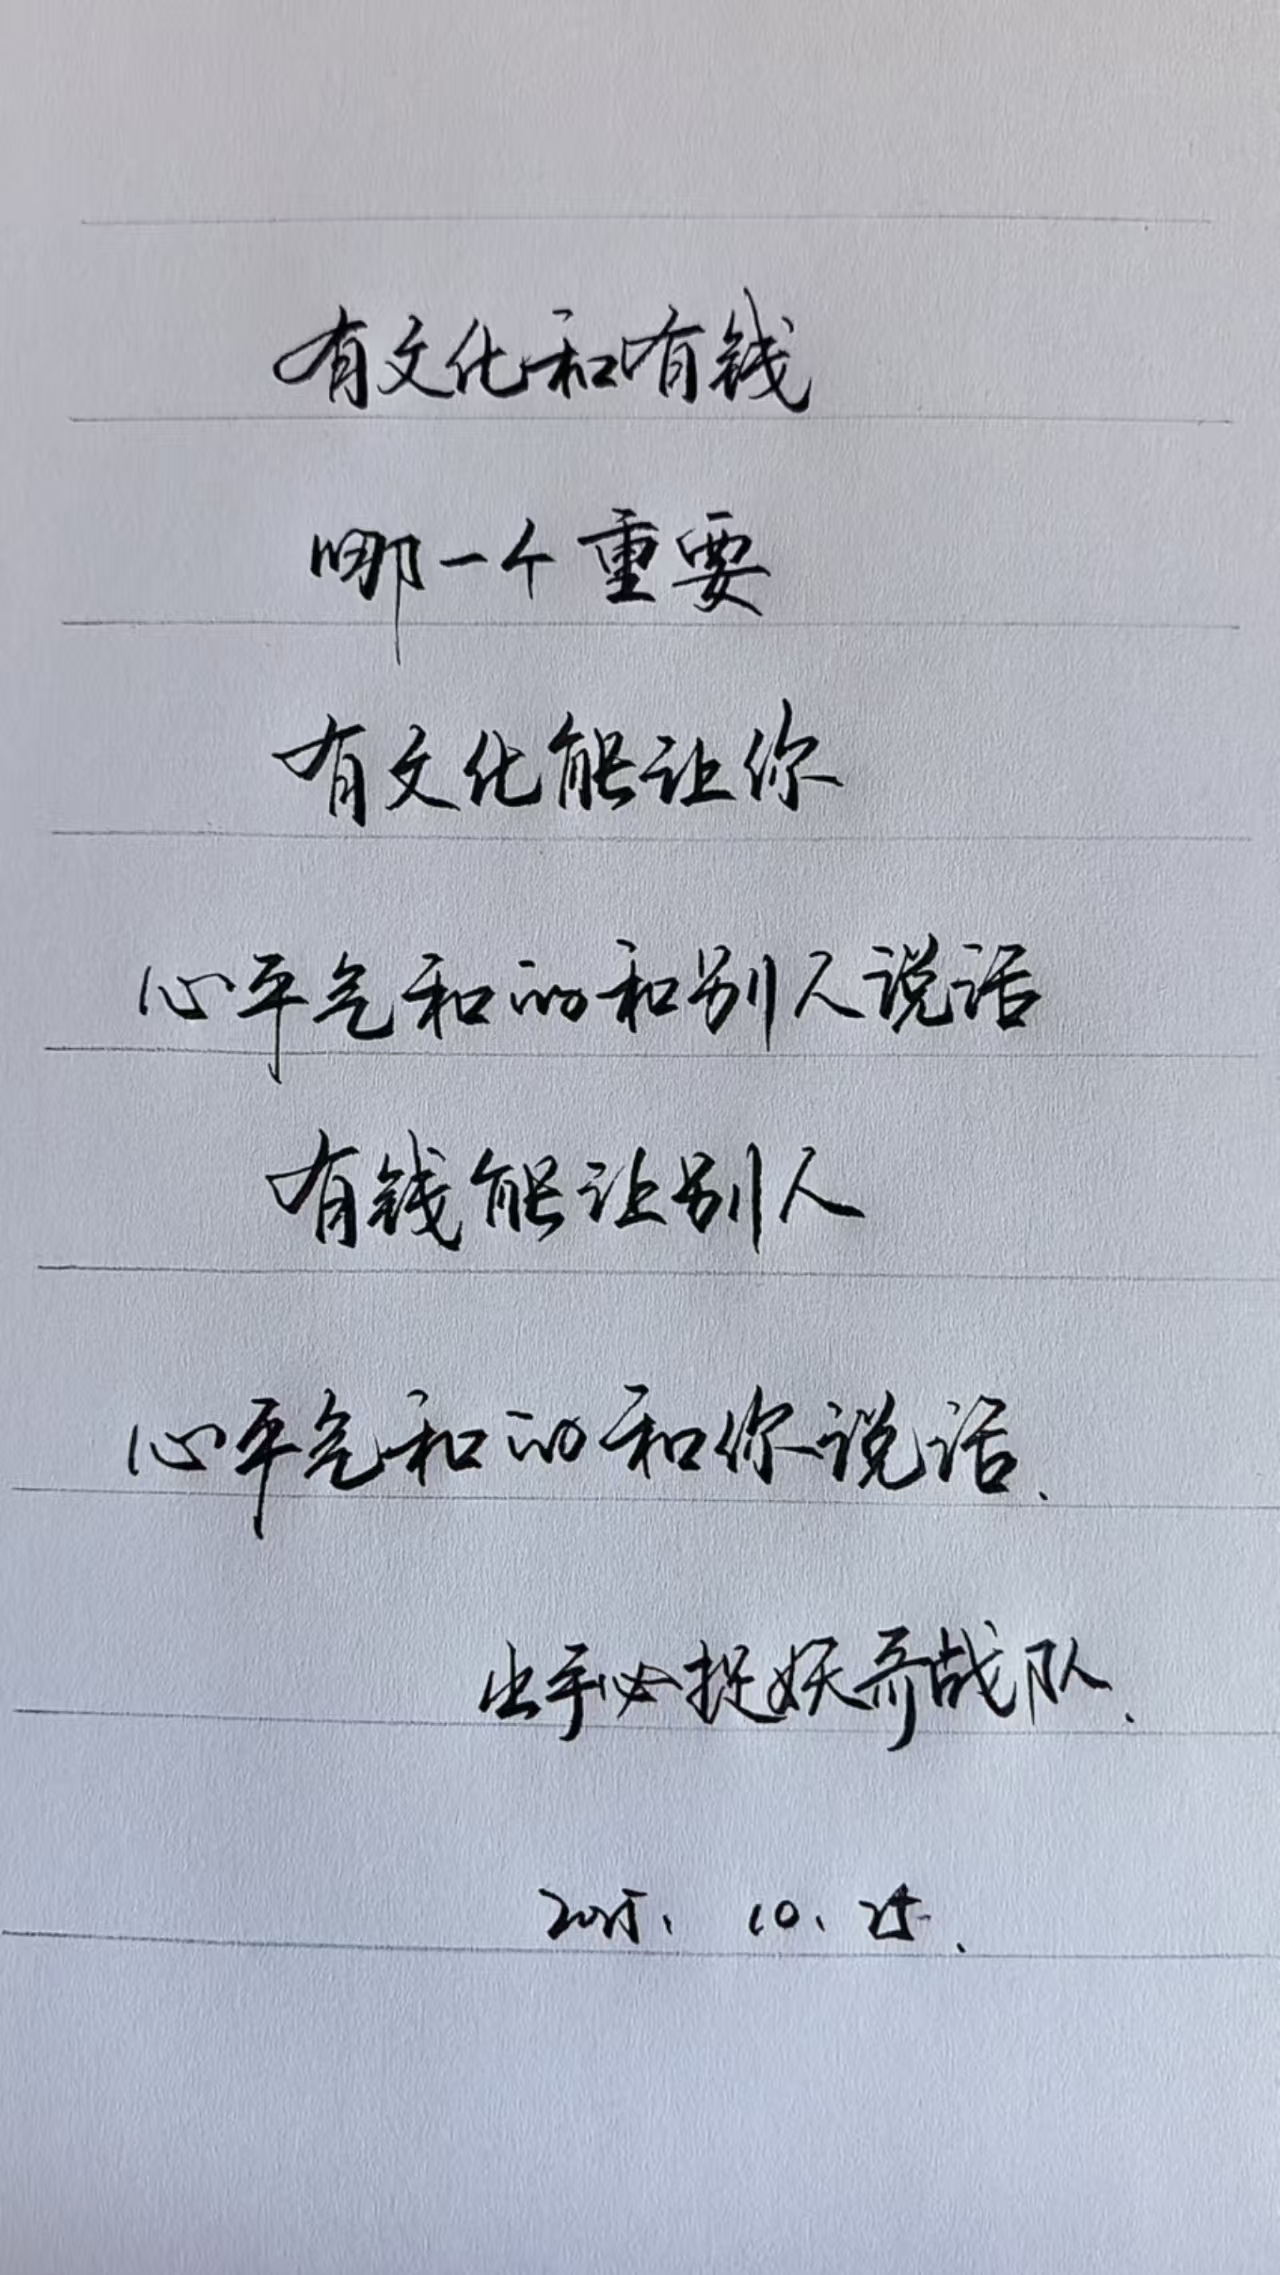 有文化和有钱
哪一个重要
有文化能让你
心平气和的和别人说话
有钱能让别人
心平气和的和你说话.
出手必捉妖奇战队.
2025. 10. 25.